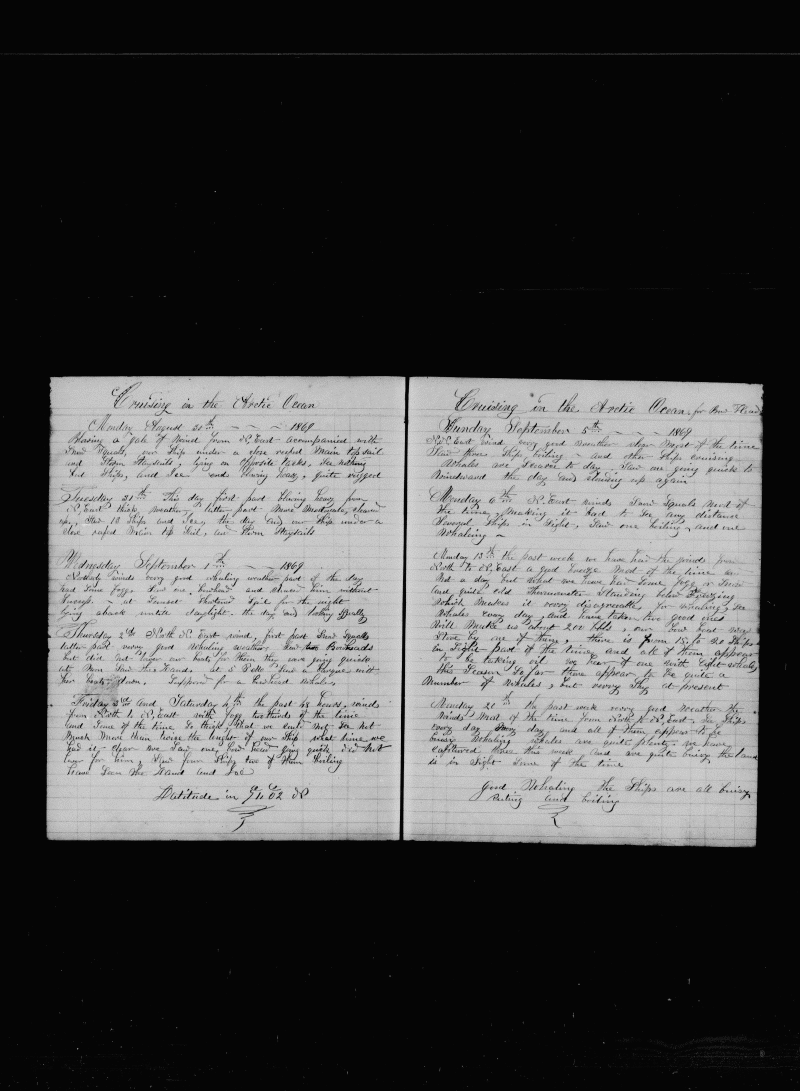 Cruising in the Arctic Ocean
Monday August 30th - - - 1869
Blowing a gale of wind from N. East accompanied with
Snow Squalls, our Ship under a close reefed Main topsail
and Storm Staysails, lying on opposite tacks, See nothing
but Ships, and Ice and blowing heavy, quite rugged
Tuesday 31st This day first part blowing heavy from
N. East thick weather, latter part More Moderate, cleared
up, Saw 10 Ships and Ice, the day end our Ship under a
close reefed Main top Sail, and Storm Staysails
Wednesday September 1st - - 1869
winds very good whaling weather part of the day
had Some fogg. Saw one bowhead and chased him without
Success - at Sunset Shortened Sail for the night
lying aback until daylight. the day end
Thursday 2nd North N. East wind, first part Snow Squalls
latter part very good whaling weather Saw two Bowheads
but did not lower our boats for them they were going quick
at Noon Saw the Land. at 5 P.M. Saw a Barque with
her boats down. Suppose for a Bowhead whales
Friday 3rd and Saturday 4th the past 48 hours, winds
from North to N. East with fogg two thirds of the time
and Some of the time So thick that we could not See not
Much More than twice the length of our Ship what time we
had it clear we Saw one Bow head going quick did not
lower for him, Saw four Ships two of them boiling
have Seen the Land and Ice
Latitude in 74 02 N
Cruising in the Arctic Ocean for Bow Heads
Sunday September 5th - - - 1869
N. N. East wind very good weather clear Most of the time
Saw three Ships boiling and other Ships cruising
Whales are Scarce to day. Saw one going quick to
windward the day end Cruising up again
Monday 6th N. East winds Snow Squals Most of
the time, Making it hard to See any distance
Several Ships in Sight, Saw one boiling and one
Whaleing
Monday 13th the past week we have had the winds from
North to N. East a good breeze Most of the time
Not a day but what we have had Some fogg or Snow
And quite cold Thermometer Standing below Freezing
Which Makes it very disagreeable for whaling, See
Whales every day and have taken two good ones
Will Make us about 200 bbls, our bow boat was
Stove by one of them, there is from 15 to 20 Ships
in Sight part of the time, and all of them appear
to be taking oil we hear of one with Eight whales
this Season So far there appear to be quite a
Number of Whales, but very Shy at present
Monday 20th the past week very good weather the
Winds Most of the time from North to N. East See Ships
every day and all of them appear to be
buisy whaling whales are quite plenty. we have
captured this week and are quite buisy the land
is in Sight Some of the time
Good Whaling the Ships are all buisy
Cuting and boiling